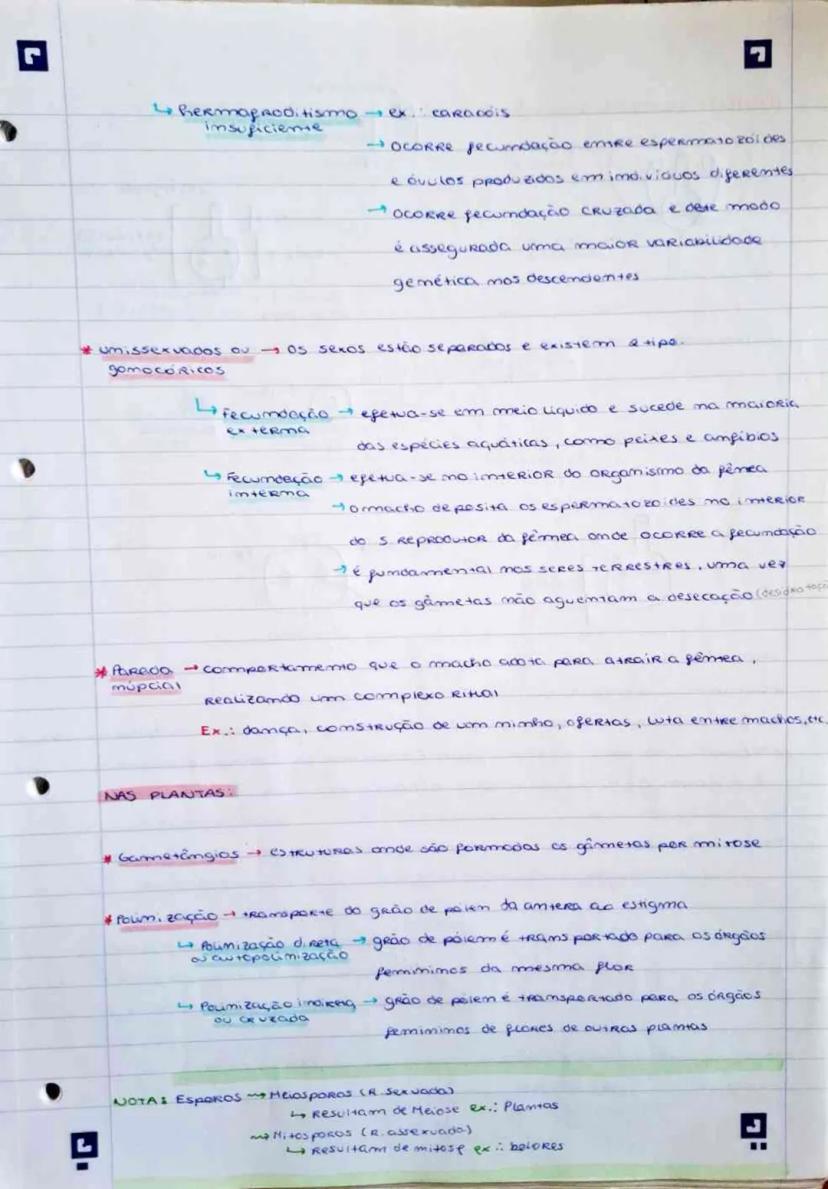 ↳ Hermafroditismo → ex.: caracóis
insuficiente
→ ocorre fecundação entre espermatozóides
e óvulos produzidos em indivíduos diferentes
→ ocorre fecundação cruzada e deste modo
é assegurada uma maior variabilidade
genética nos descendentes
* unissexuados ou → os sexos estão separados e existem 2 tipo.
gonocóricos
↳ Fecundação → efetua-se em meio líquido e sucede na maioria
externa
das espécies aquáticas, como peixes e anfíbios
↳ Fecundação → efetua-se no interior do organismo da fêmea
interna
→ o macho deposita os espermatozoides no interior
do S reprodutor da fêmea onde ocorre a fecundação
→ é fundamental nos seres terrestres, uma vez
que os gâmetas não aguentam a desecação
* Parada → comportamento que o macho adota para atrair a fêmea,
núpcial
realizando um complexo ritual
Ex.: dança, construção de um ninho, ofertas, luta entre machos, etc.
NAS PLANTAS:
* Gametângios → estruturas onde são formados os gâmetas por mitose
* Polinização → transporte do grão de pólen da antera ao estigma
↳ Polinização direta → grão de pólen é transportado para os órgãos
ou autopolinização
femininos da mesma flor
↳ Polinização indireta → grão de pólen é transportado para os órgãos
ou cruzada
femininos de flores de outras plantas
NOTA: Esporos ⟿ Meiosporos (R. sexuada)
↳ Resultam de Meiose ex.: Plantas
⟿ Mitosporos (R. assexuada)
↳ Resultam de mitose ex.: bolores